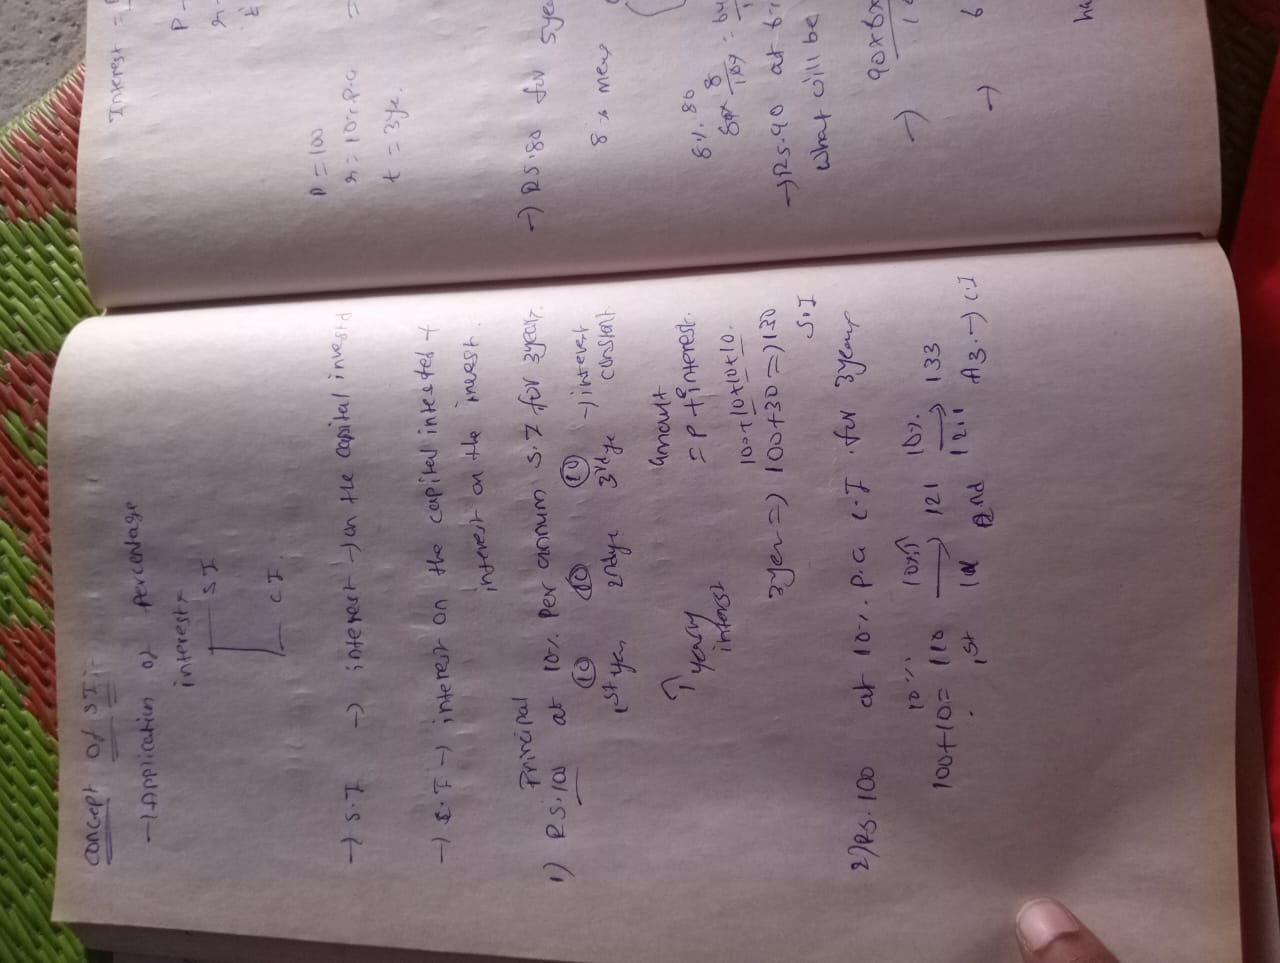 concept of SI:-
→ Application of percentage
interest
SI
CI
→ S.I → interest → on the capital invested
→ C.I → interest on the capital intested +
interest on the invest.
Principal
1) RS.100 at 10% Per annum S.I for 3years.
10 10 10 → interest
1st year 2ndye 3rdye constant
Amount
↑ yearly = P + interest.
interest 100+10+10+10.
3year => 100+30 => 130
S.I
2) Rs.100 at 10% p.a C.I for 3years
10% 10% 10%
100+10= 110 → 121 → 133
1st 2nd 121 A3 → C.I
Interest =
P = 100
r = 10% p.a =
t = 3ye.
→ RS.80 for 5yea
8% mea
8% 80
80x 8/100 = 64
→ RS.90 at 6%
What will be
→ 90x6x
→ 6